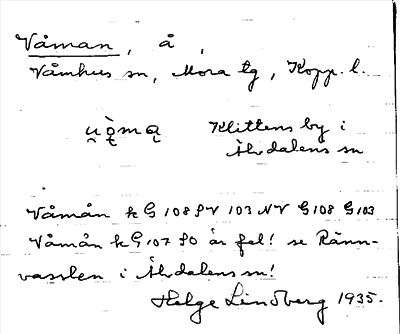 Våman, å,
Våmhus sn, Mora tg, Kopp. l.
Klittens by i
Älvdalens sn
Våmån k G 108 SV 103 NV G108 G103
Våmån k G 107 SO är fel! se Ränn-
vasslen i Älvdalens sn!
Helge Lindberg 1935.